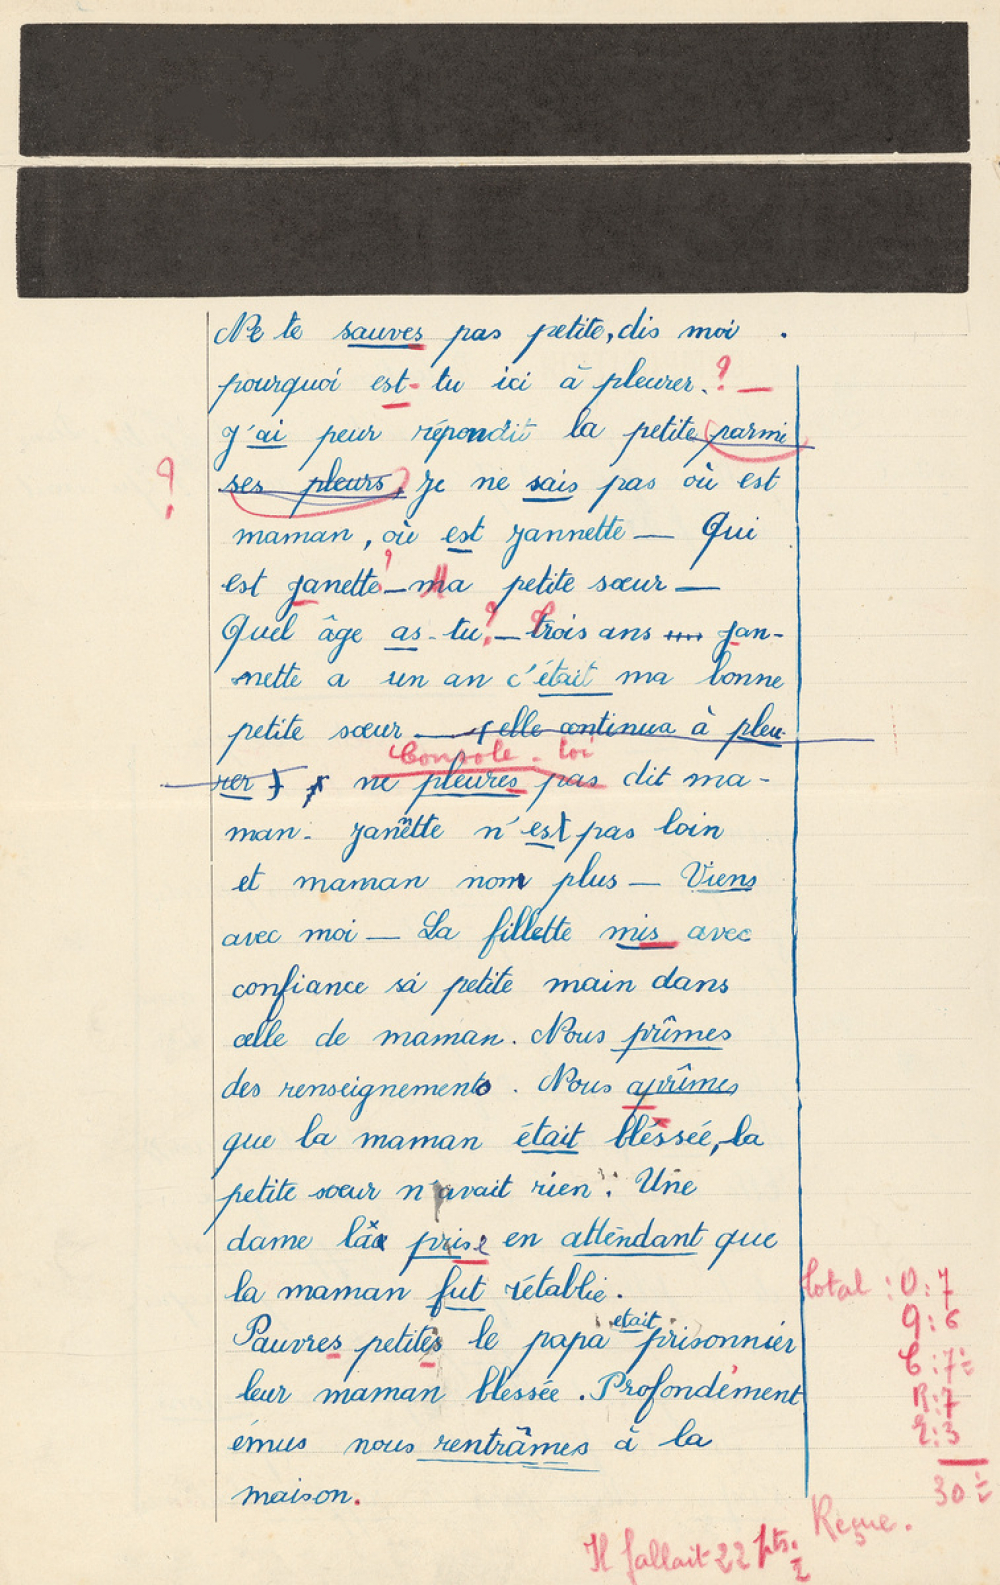 Ne te sauves pas petite, dis moi .
pourquoi est-tu ici à pleurer. ? —
J'ai peur répondit la petite parmi
? ses pleurs, Je ne sais pas où est
maman, où est Jannette — Qui
est Janette ? — Ma petite sœur —
Quel âge as-tu ? — Trois ans Jan-
nette a un an c'était ma bonne
petite sœur — (elle continua à pleu-
Console-toi
rer) ne pleures pas dit ma-
man. Janette n'est pas loin
et maman non plus — Viens
avec moi — La fillette mis avec
confiance sa petite main dans
celle de maman. Nous prîmes
des renseignements. Nous aprîmes
que la maman était bléssée, la
petite sœur n'avait rien. Une
dame l'a prise en attendant que
la maman fut rétablie.
était
Pauvres petites le papa prisonnier
leur maman blessée. Profondément
émus nous rentrâmes à la
maison.
Total : O : 7
G : 6
C : 7 ½
R : 7
E : 3
30 ½
Reçue.
Il fallait 22 pts. ½